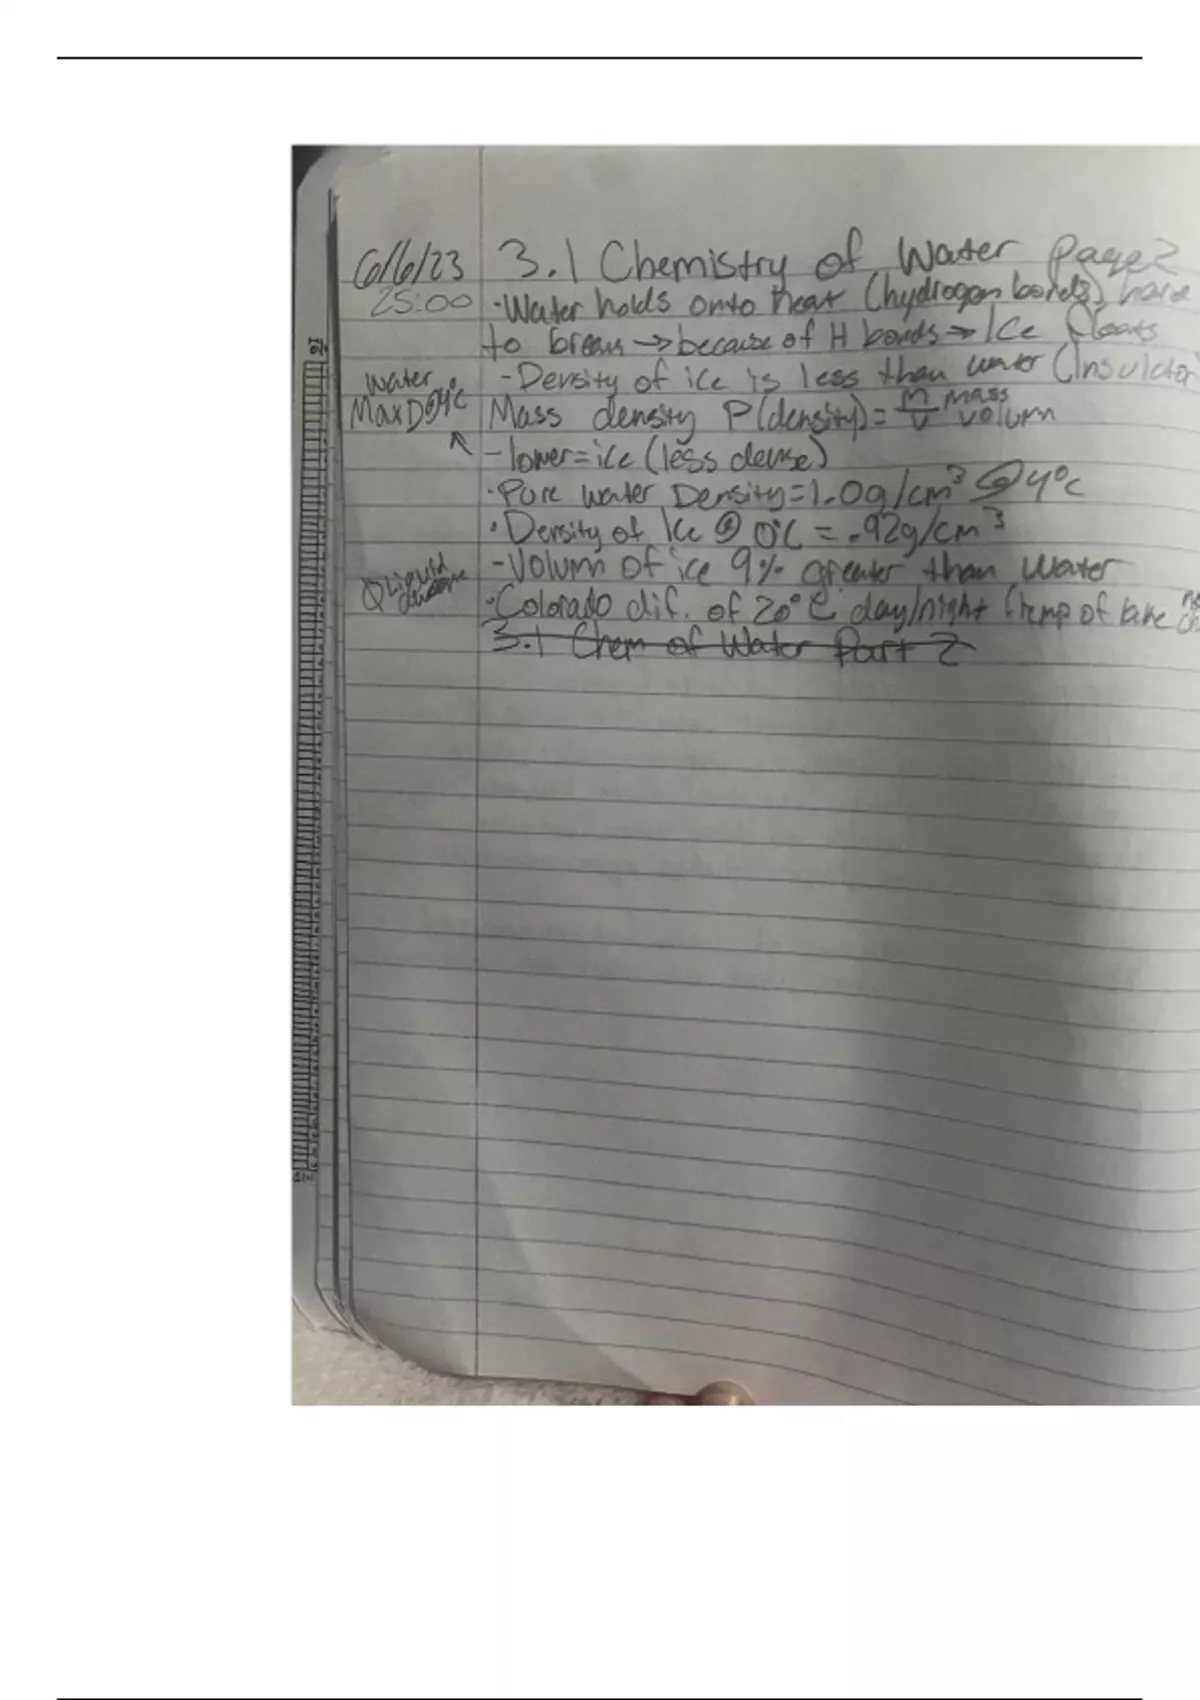 6/6/23 3.1 Chemistry of Water Page 2
25:00 · Water holds onto heat (hydrogen bonds) hard
to break → because of H bonds → Ice floats
- Density of ice is less than water (Insulator
Water
Max D@4°C Mass density P(density) = m/v mass volum
- lower = ice (less dense)
· Pure water Density = 1.0g/cm³ @ 4°C
· Density of Ice @ 0°C = .92g/cm³
- Volum of ice 9% greater than water
Liquid
· Colorado dif. of 20°C day/night (temp of lake
3.1 Chem of Water Part 2